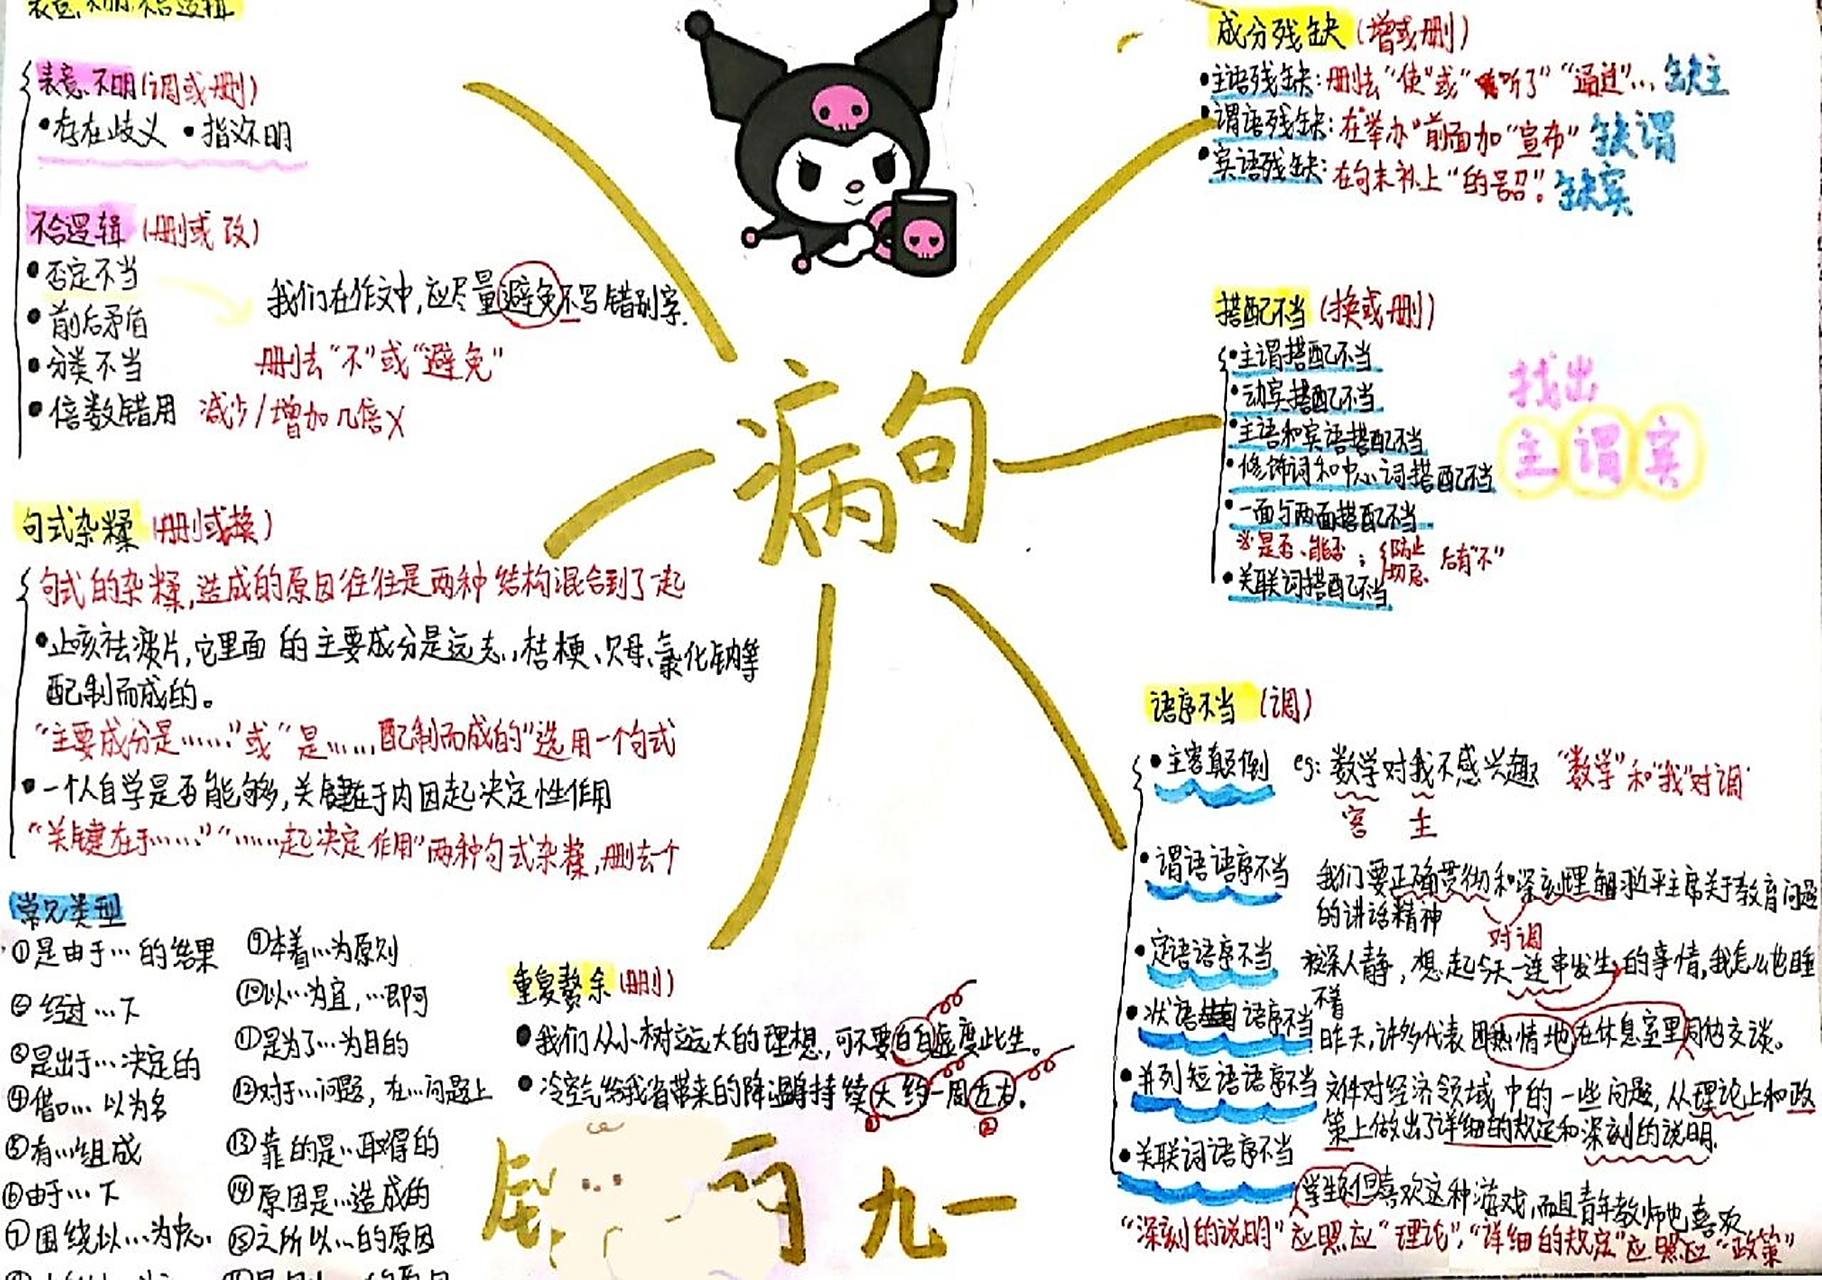 表意不明 不合逻辑
表意不明(调或删)
•存在歧义 •指义不明
不合逻辑(删或改)
•否定不当
我们在作文中,应尽量避免不写错别字.
•前后矛盾
删去“不”或“避免”
•分类不当
•倍数错用 减少/增加几倍X
句式杂糅(删或换)
句式的杂糅,造成的原因往往是两种结构混合到了一起
•止咳祛痰片,它里面的主要成分是远志、桔梗、贝母、氯化钠等
配制而成的。
“主要成分是……”或“是……配制而成的”选用一个句式
•一个人自学是否能够,关键在于内因起决定性作用
“关键在于……”“……起决定作用”两种句式杂糅,删去一个
常见类型
①是由于…的结果
②经过…下
③是出于…决定的
④借口…以为名
⑤有…组成
⑥由于…下
⑦围绕以…为中心
⑨本着…为原则
⑩以…为宜,…即可
⑪是为了…为目的
⑫对于…问题,在…问题上
⑬靠的是…取得的
⑭原因是…造成的
⑮之所以…的原因
病句
重复赘余(删)
•我们从小树立远大的理想,可不要白白虚度此生。
•冷空气给我省带来的降温将持续大约一周左右.
① ②
九一
成分残缺(增或删)
•主语残缺:删去“使”或“听了”“通过”… 缺主
•谓语残缺:在“举办”前面加“宣布” 缺谓
•宾语残缺:在句末补上“的号召”。 缺宾
搭配不当(换或删)
•主谓搭配不当
•动宾搭配不当
•主语和宾语搭配不当
•修饰词和中心词搭配不当
•一面与两面搭配不当
※是否、能否;防止 切忌 后有“不”
•关联词搭配不当
找出
主谓宾
语序不当(调)
•主客颠倒 eg:数学对我不感兴趣 “数学”和“我”对调
客 主
•谓语语序不当 我们要正确贯彻和深刻理解习近平主席关于教育问题
的讲话精神
对调
•定语语序不当 夜深人静,想起今天一连串发生的事情,我怎么也睡
不着
•状语语序不当 昨天,许多代表团热情地在休息室里同他交谈。
•并列短语语序不当 文件对经济领域中的一些问题,从理论上和政
策上做出了详细的规定和深刻的说明.
•关联词语序不当
学生不但喜欢这种游戏,而且青年教师也喜欢
“深刻的说明”应照应“理论”,“详细的规定”应照应“政策”